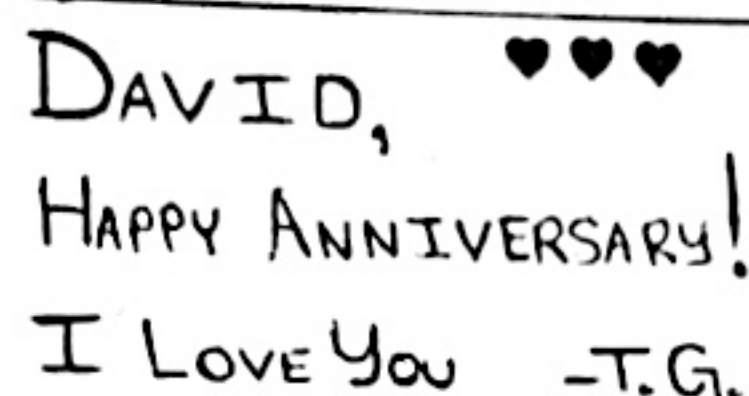 DAVID, ♥♥♥
HAPPY ANNIVERSARY!
I LOVE YOU -T.G.